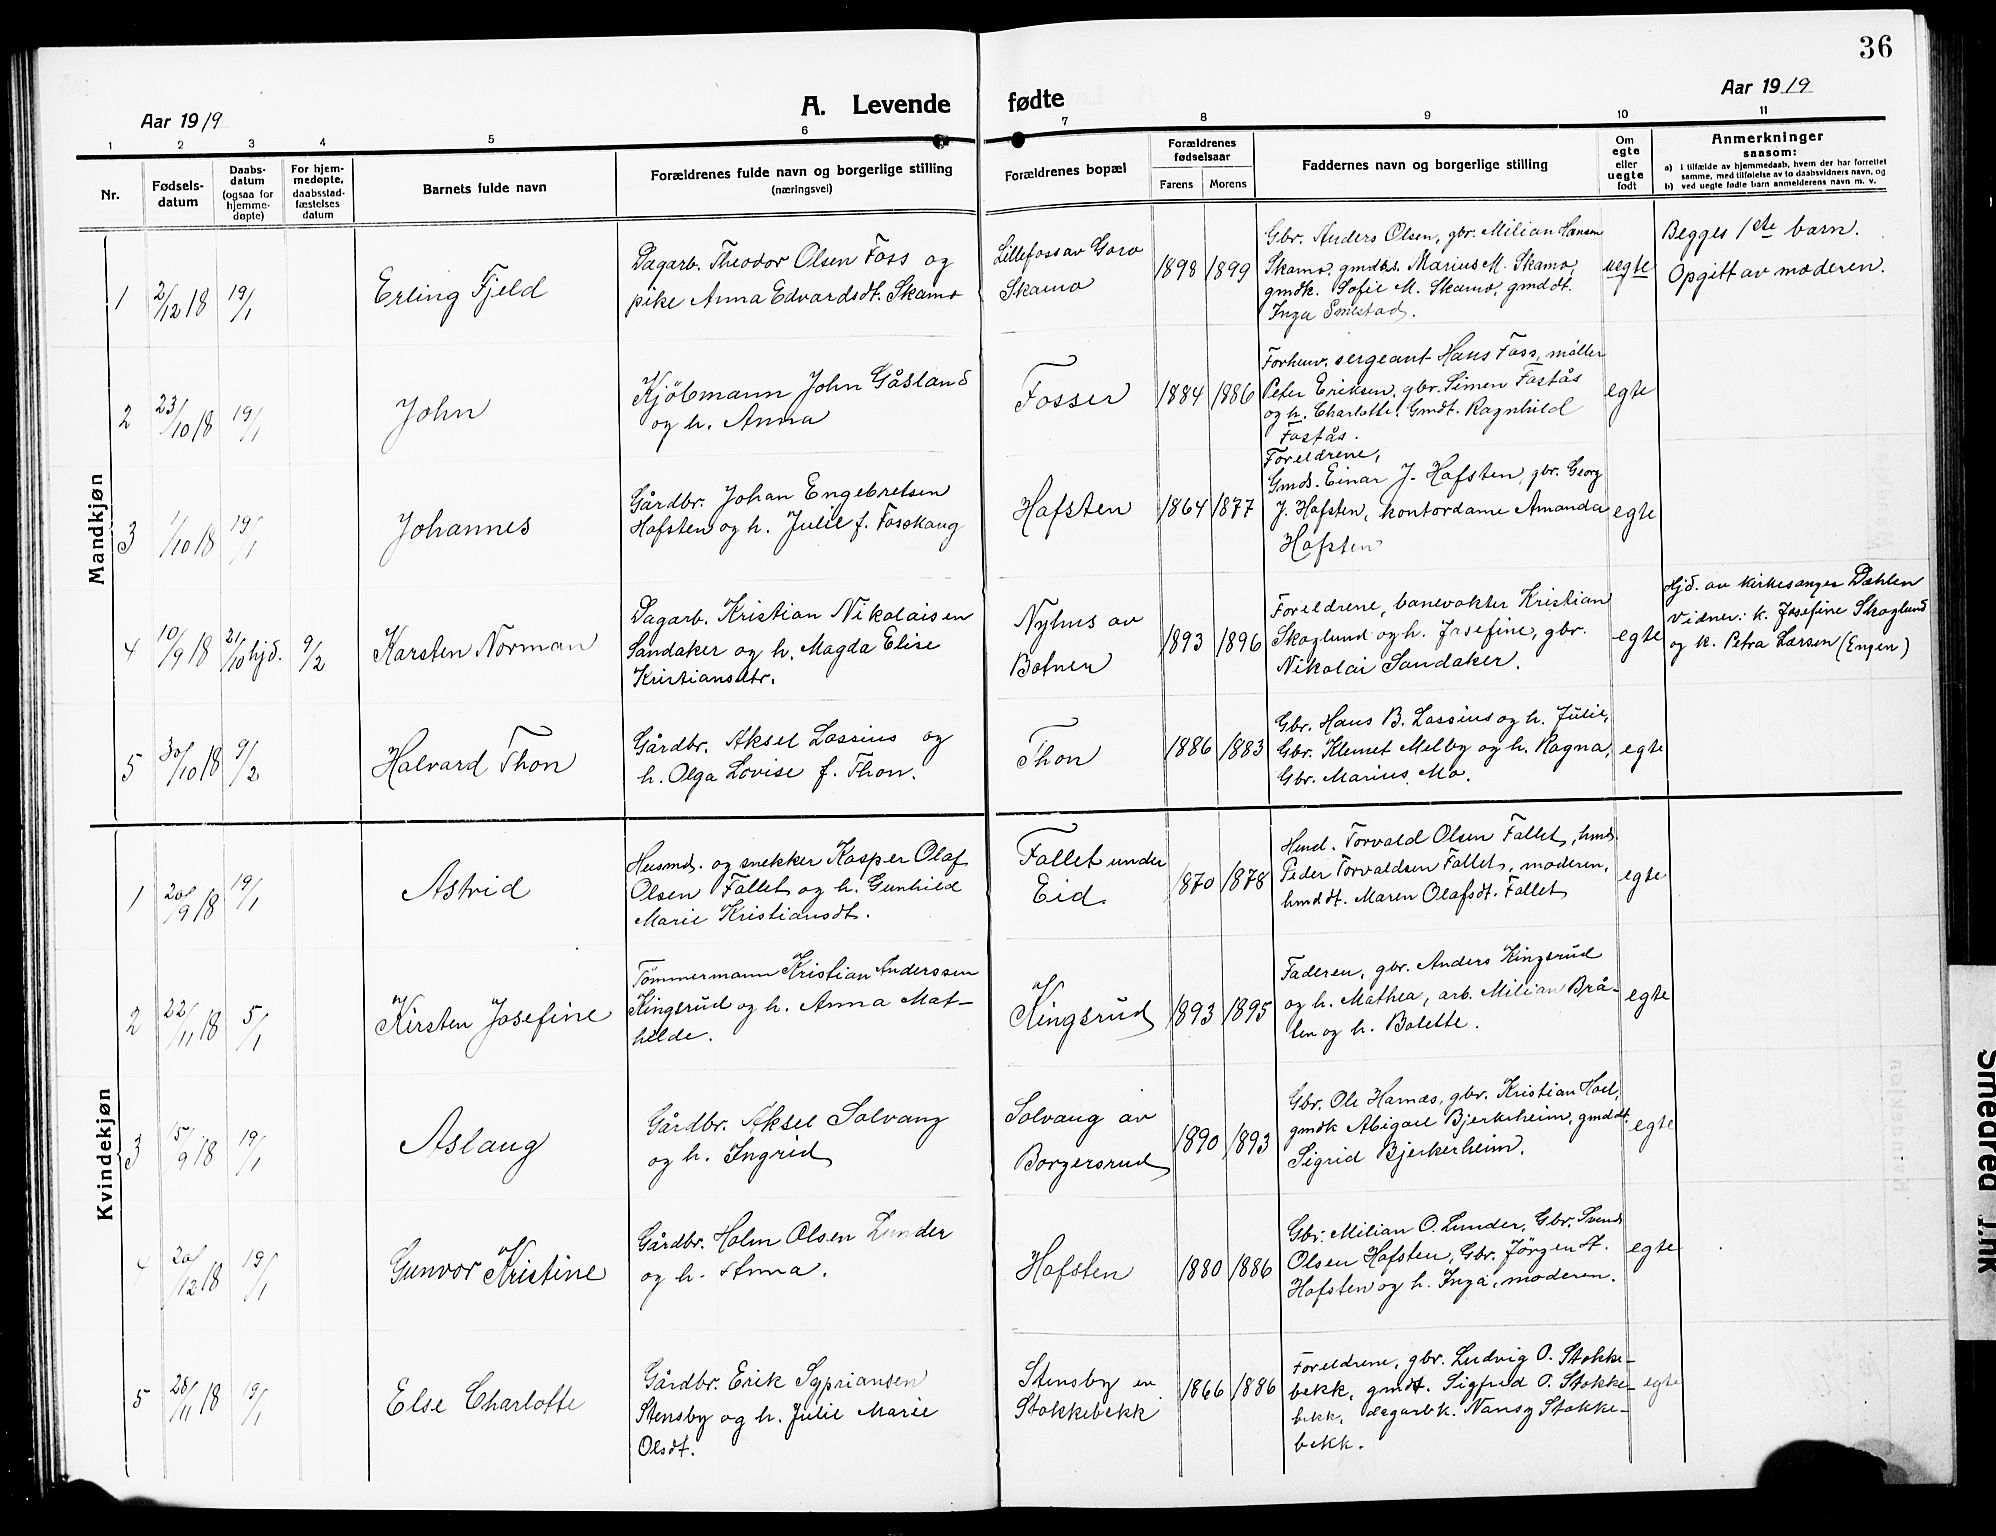 36
A. Levende fødte
Aar 1919
Aar 1919
1 2 3 4 5 6 7 8 9 10 11
Nr.
Fødsels-
datum
Daabs-
datum
(ogsaa for
hjemme-
døpte)
For hjem-
medøpte,
daabsstad-
fæstelses
datum
Barnets fulde navn
Forældrenes fulde navn og borgerlige stilling
(næringsvei)
Forældrenes bopæl
Forældrenes
fødselsaar
Farens Morens
Faddernes navn og borgerlige stilling
Om
egte
eller
uegte
født
Anmerkninger
saasom:
a) i tilfælde av hjemmedaab, hvem der har forrettet
samme, med tilføielse av to daabsvidners navn, og
b) ved uegte fødte barn anmelderens navn m. v.
Mandkjøn
1
2/12 18
19/1
Erling Fjeld
Dagarb. Theodor Olsen Foss og
pike Anna Edvardsdt. Skamo
Lillefoss av Goro
Skamo
1898 1899
Gbr. Anders Olsen, gbr. Milian Hansen
Skamo, gmdsd. Marius M. Skamo,
gmdk. Sofie M. Skamo, gmddt.
Inga Smestad.
uegte
Begges 1ste barn.
Opgitt av moderen.
2
23/10 18
19/1
John
Kjöbmann John Gåsland
og h. Anna
Fosser
1884 1886
Forhenv. sergeant Hans Foss, møller
Peter Eriksen, gbr. Simen Fostås
og h. Charlotte, Gmdt. Ragnhild
Fostås.
egte
3
1/10 18
19/1
Johannes
Gårdbr. Johan Engebretsen
Hofsten og h. Julie f. Fosskaug
Hafsten
1864 1877
Foreldrene,
Gmds. Einar J. Hafsten, gbr. Georg
J. Hafsten, kontordame Amanda
Hafsten
egte
4
10/9 18
21/10 hjd.
9/2
Karsten Norman
Dagarb. Kristian Nikolaisen
Sandaker og h. Magda Elise
Kristiansdtr.
Nyhus av
Botner
1893 1896
Foreldrene, banevokter Kristian
Skoglund og h. Josefine, gbr.
Nikolai Sandaker.
egte
Hjd. av kirkesanger Dæhlen
Vidner: k. Josefine Skoglund
og k. Petra Larsen (Engen)
5
30/10 18
9/2
Halvard Thon
Gårdbr. Aksel Lossius og
h. Olga Lovise f. Thon.
Thon
1886 1883
Gbr. Hans B. Lossius og h. Julie,
Gbr. Klemet Melby og h. Ragna,
Gbr. Marius Mo.
egte
Kvindekjøn
1
20/9 18
19/1
Astrid
Husmd. og snekker Kasper Olaf
Olsen Fallet og h. Gunhild
Marie Kristiansdt.
Fallet under
Eid
1870 1878
Hmd. Torvald Olsen Fallet, hmds.
Peder Torvaldsen Fallet, moderen,
hmddt. Maren Olafsdt. Fallet
egte
2
22/11 18
5/1
Kirsten Josefine
Tömmermann Kristian Anderssen
Kingsrud og h. Anna Mat-
hilde.
Kingsrud
1893 1895
Faderen, gbr. Anders Kingsrud
og h. Mathea, arb. Milian Brå-
ten og h. Bolette.
egte
3
5/9 18
19/1
Aslaug
Gårdbr. Aksel Solvang
og h. Ingrid
Solvang av
Borgersrud
1890 1893
Gbr. Ole Harnæs, gbr. Kristian Hoel,
gmdk Abigael Bjerkerheim, gmddt.
Sigrid Bjerkerheim.
egte
4
20/12 18
19/1
Gunvor Kristine
Gårdbr. Holm Olsen Lunder
og h. Anna.
Hofsten
1880 1886
Gbr. Milian O. Lunder, Gbr. Svend
Olsen Hofsten, Gbr. Jörgen A.
Hofsten og h. Inga, moderen.
egte
5
28/11 18
19/1
Else Charlotte
Gårdbr. Erik Sypriansen
Stensby og h. Julie Marie
Olsdt.
Stensby av
Stokkebekk
1866 1886
Foreldrene, gbr. Ludvig O. Stokke-
bekk, gmdt. Sigfrid O. Stokke-
bekk, dagarbk. Nansy Stokke-
bekk.
egte
Smeared Ink